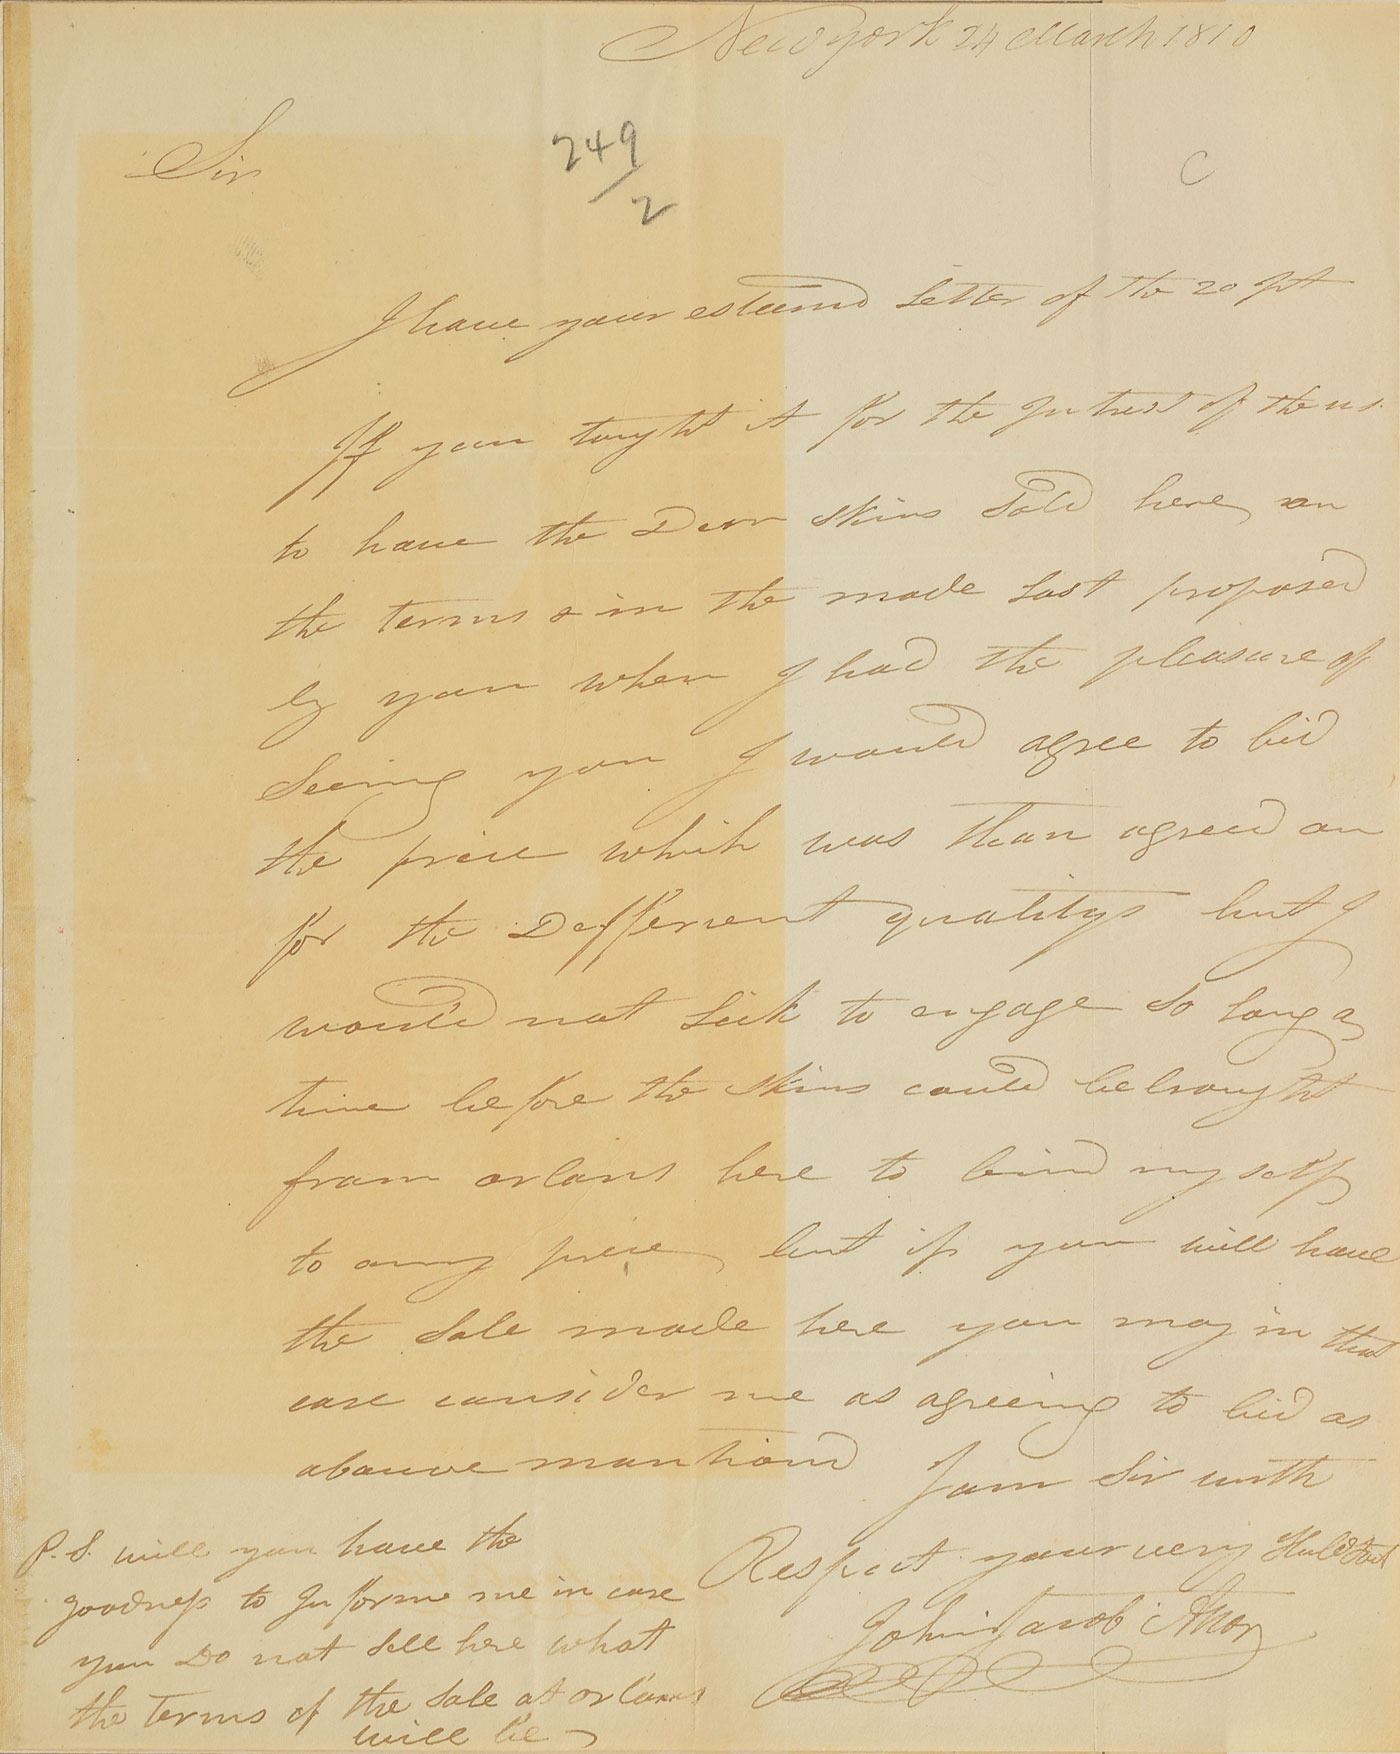 New york 24 March 1810
Sir
249/2
C
I have your esteemd Letter of the 20 
If you tought it for the Intrest of the us.
to have the Dear skins Sold here, on
the terms & in the mode Last proposed
by you when I had the pleasure of
Seeing you I would agree to bid
the price which was than agreed on
for the Defferent qualitys but I
would not Leik to engage So long a
time before the skins could be brought
from orlans here to bind my self
to any price, but if you will have
the Sale made here you may in that
case consider me as agreeing to bid as
abouve mantiond I am Sir with
Respect your very
John Jacob Astor
P.S. will you have the
goodness to Informe me in case
you Do not Sell here what
the terms of the Sale at orlans
will be